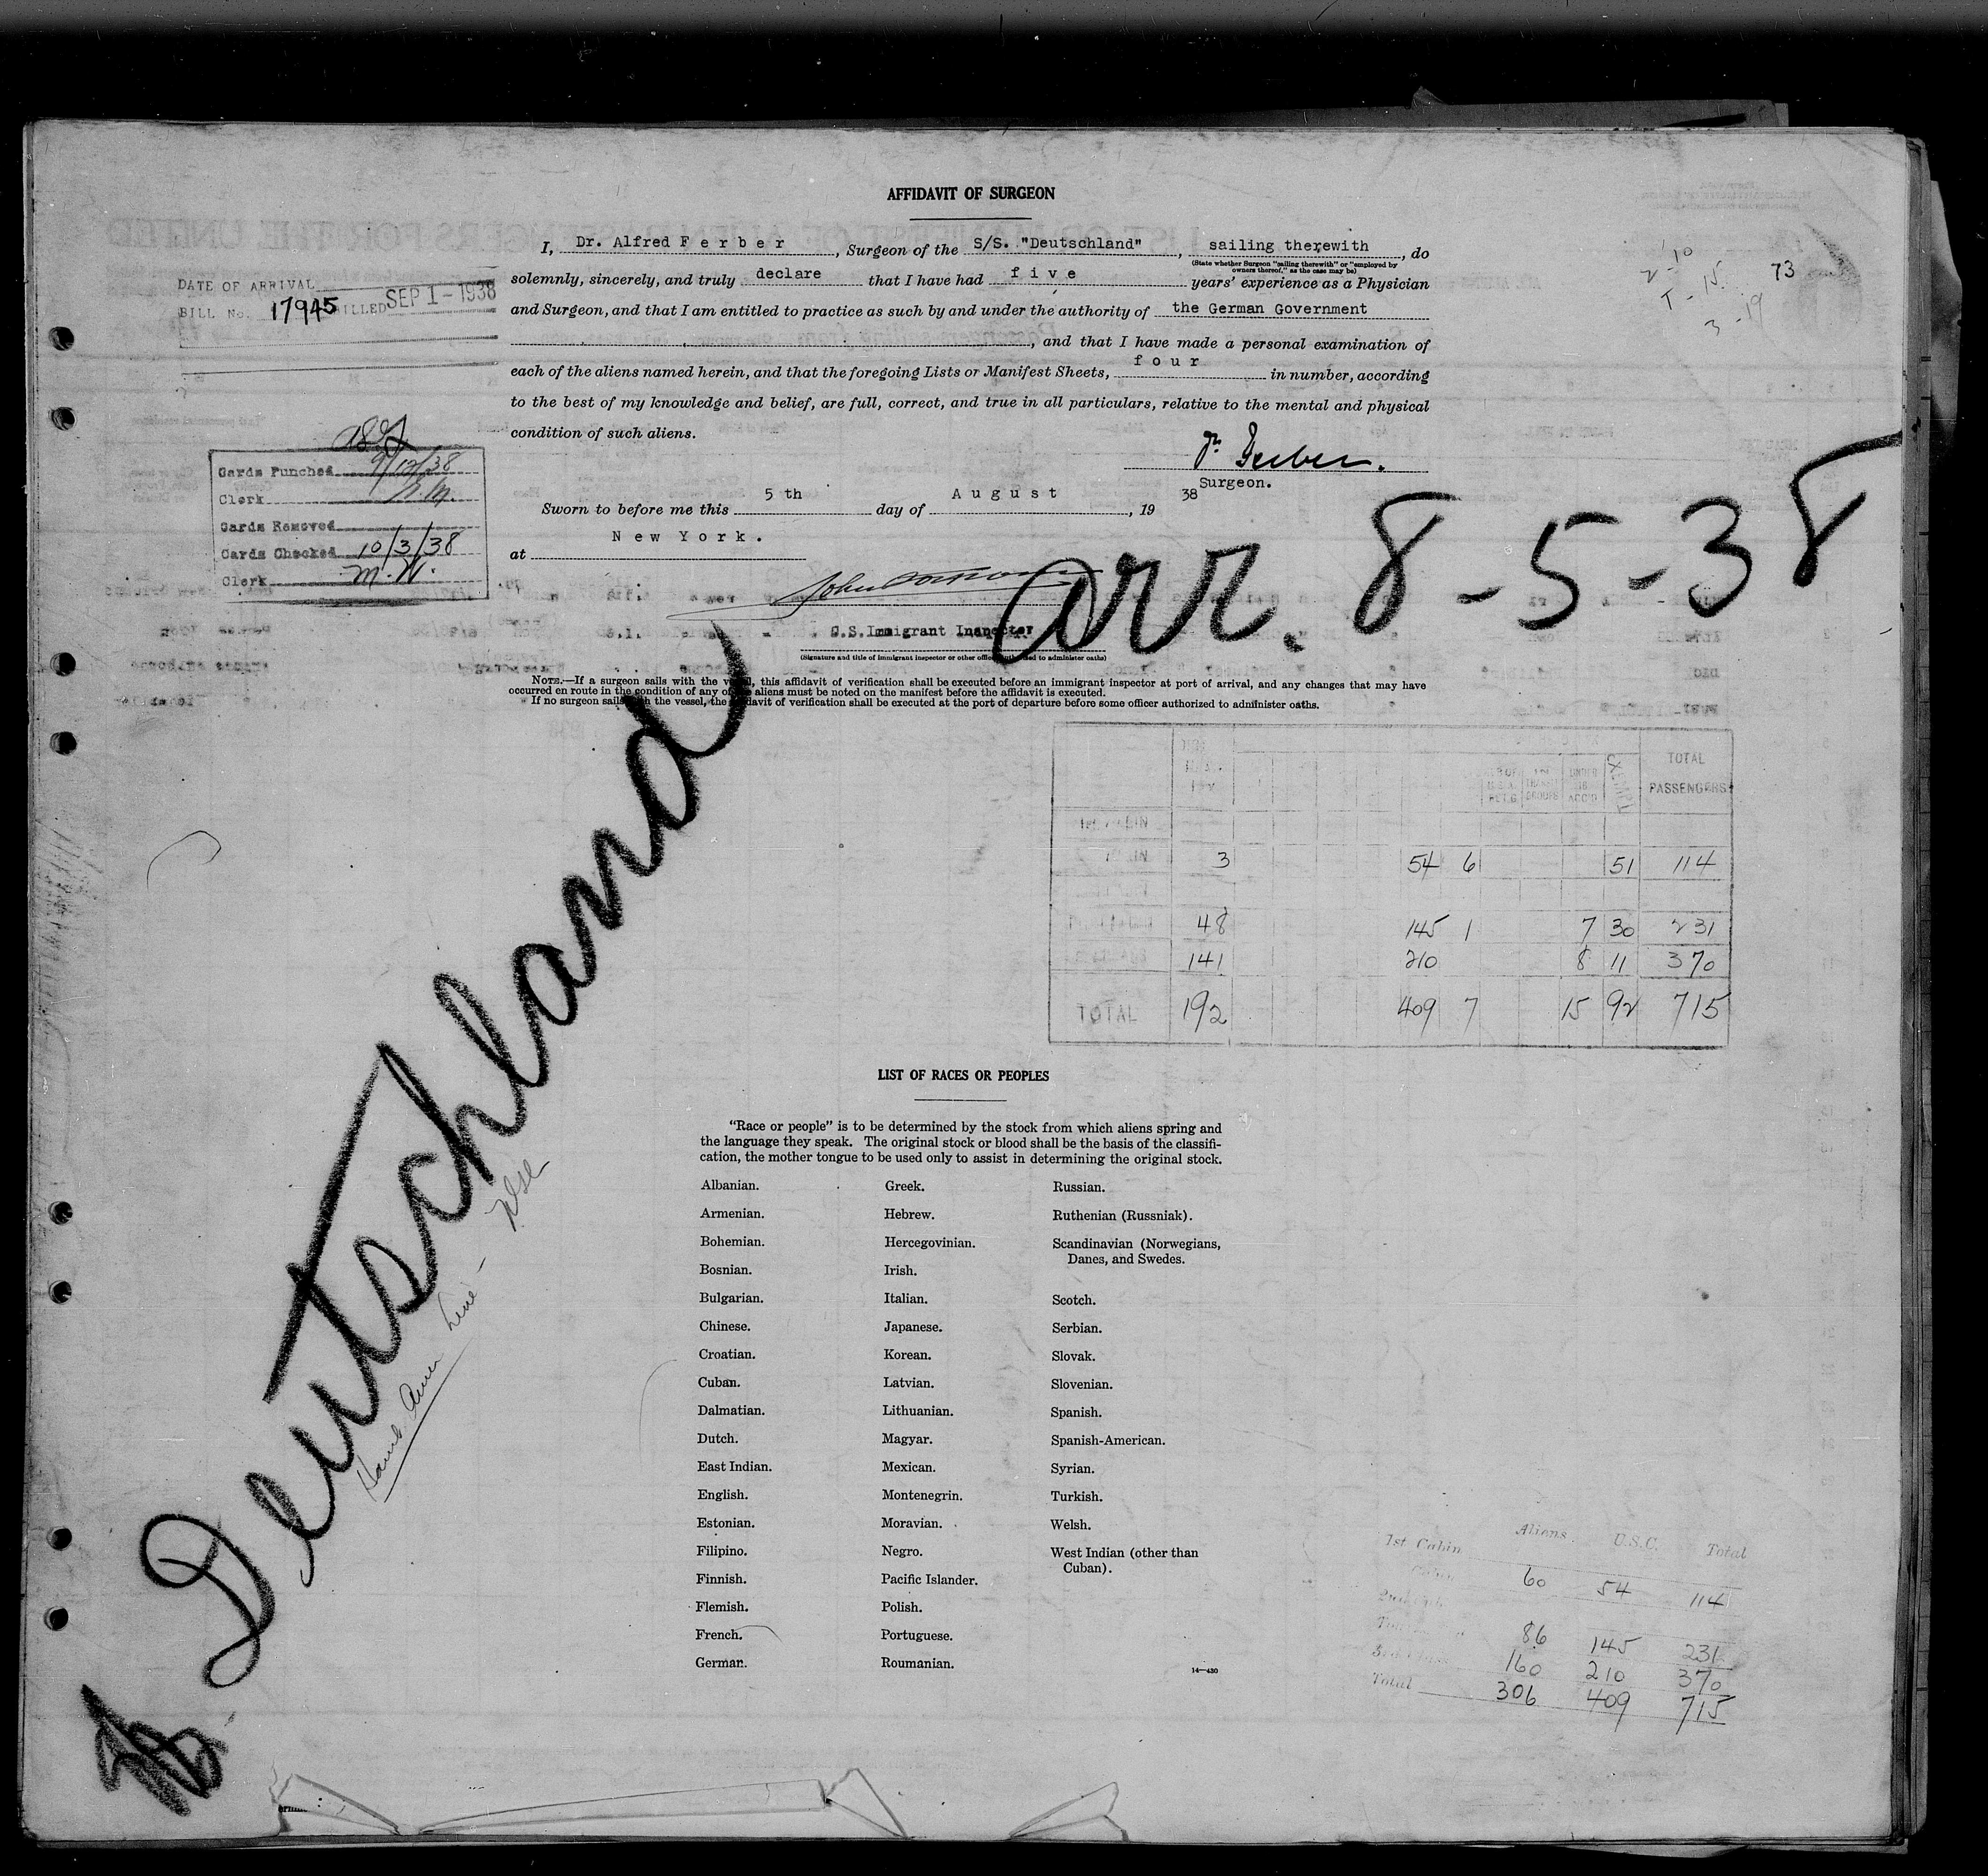 AFFIDAVIT OF SURGEON
I, Dr. Alfred F e r b e r, Surgeon of the S/S. "Deutschland", sailing therewith, do
(State whether Surgeon "sailing therewith" or "employed by
owners thereof," as the case may be)
solemnly, sincerely, and truly declare that I have had f i v e years' experience as a Physician
and Surgeon, and that I am entitled to practice as such by and under the authority of the German Government
, and that I have made a personal examination of
each of the aliens named herein, and that the foregoing Lists or Manifest Sheets, f o u r in number, according
to the best of my knowledge and belief, are full, correct, and true in all particulars, relative to the mental and physical
condition of such aliens.
Dr. Ferber.
Surgeon.
Sworn to before me this 5 th day of A u g u s t, 19 38
at N e w Y o r k .
U.S.Immigrant Inspector
(Signature and title of immigrant inspector or other officer authorized to administer oaths)
NOTE.—If a surgeon sails with the vessel, this affidavit of verification shall be executed before an immigrant inspector at port of arrival, and any changes that may have
occurred en route in the condition of any of the aliens must be noted on the manifest before the affidavit is executed.
If no surgeon sails with the vessel, the affidavit of verification shall be executed at the port of departure before some officer authorized to administer oaths.
DATE OF ARRIVAL
BILL No. 17945 BILLED SEP 1 - 1938
Cards Punched 9/12/38
Clerk
Cards Removed
Cards Checked 10/3/38
Clerk M.W.
2-10
T-15
3-19
73
arr. 8-5-38
Deutschland
Hamb Amer Line -
EXEMPT
TOTAL
PASSENGERS
3 54 6 51 114
48 145 1 7 30 231
141 210 8 11 370
TOTAL 192 409 7 15 92 715
LIST OF RACES OR PEOPLES
"Race or people" is to be determined by the stock from which aliens spring and
the language they speak. The original stock or blood shall be the basis of the classifi-
cation, the mother tongue to be used only to assist in determining the original stock.
Albanian.
Armenian.
Bohemian.
Bosnian.
Bulgarian.
Chinese.
Croatian.
Cuban.
Dalmatian.
Dutch.
East Indian.
English.
Estonian.
Filipino.
Finnish.
Flemish.
French.
German.
Greek.
Hebrew.
Hercegovinian.
Irish.
Italian.
Japanese.
Korean.
Latvian.
Lithuanian.
Magyar.
Mexican.
Montenegrin.
Moravian.
Negro.
Pacific Islander.
Polish.
Portuguese.
Roumanian.
Russian.
Ruthenian (Russniak).
Scandinavian (Norwegians,
Danes, and Swedes.
Scotch.
Serbian.
Slovak.
Slovenian.
Spanish.
Spanish-American.
Syrian.
Turkish.
Welsh.
West Indian (other than
Cuban).
14—430
Aliens U.S.C. Total
1st Cabin
60 54 114
86 145 231
3rd Class 160 210 370
Total 306 409 715